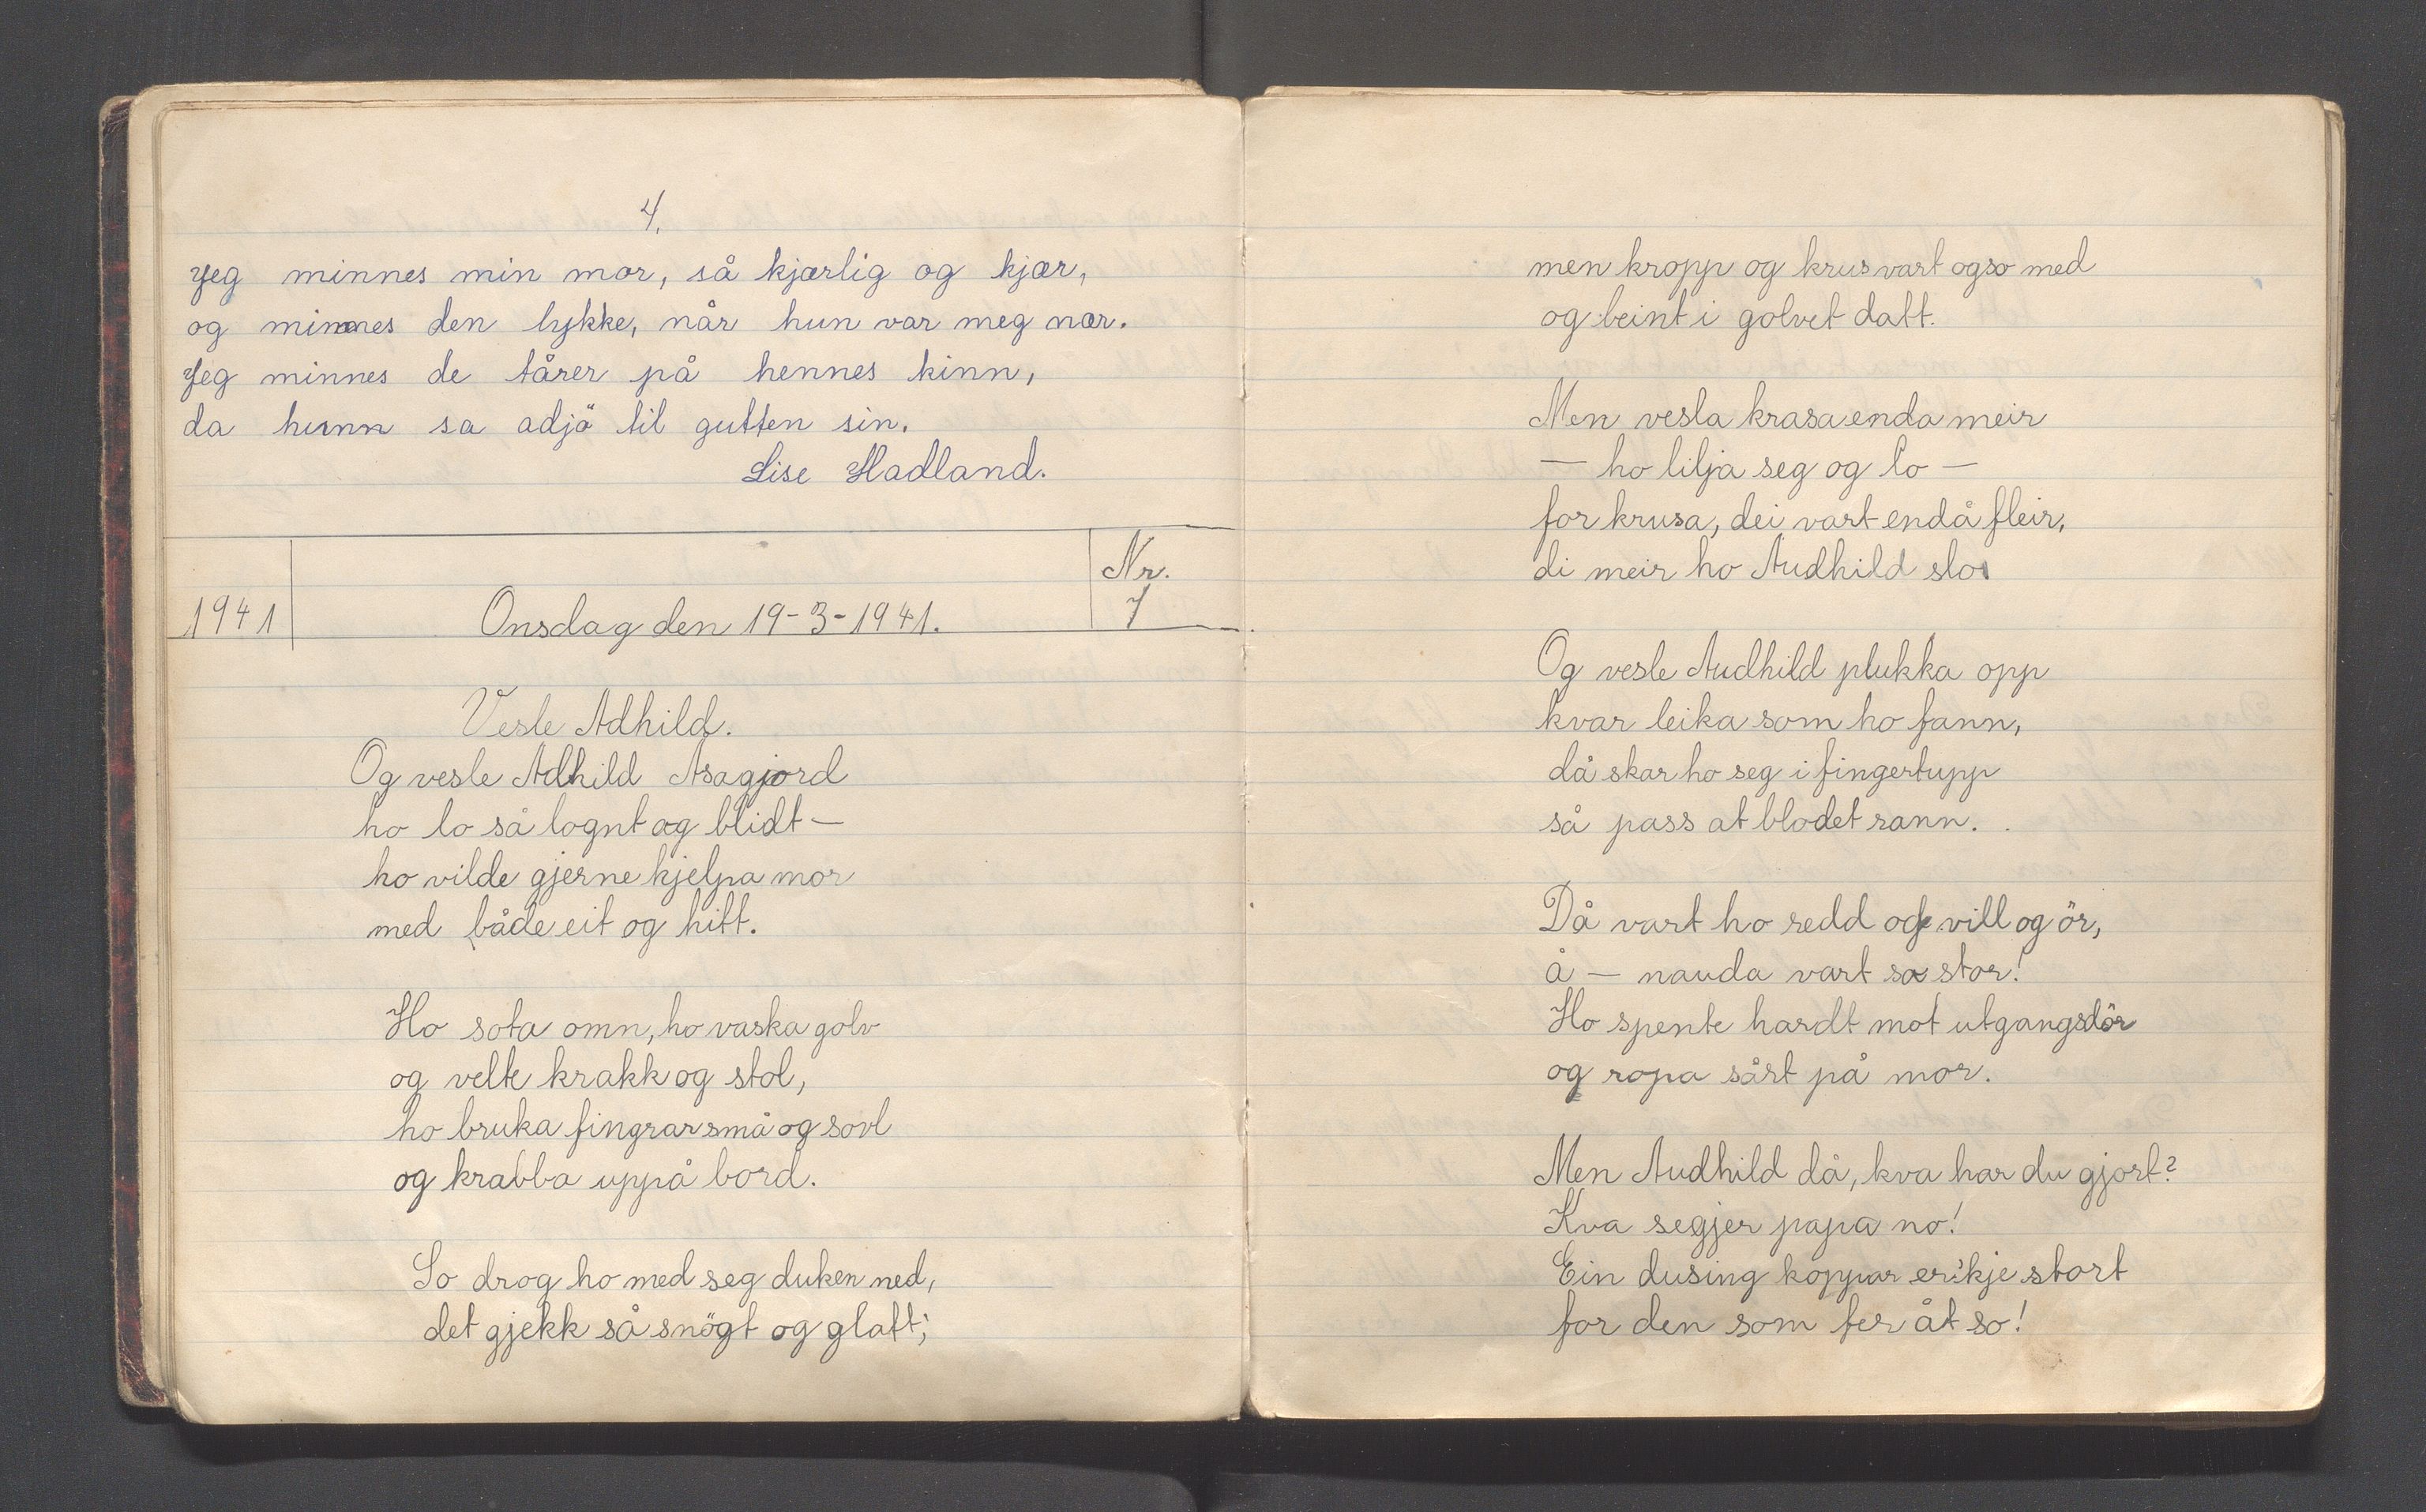 4.
Jeg minnes min mor, så kjærlig og kjær,
og minnes den lykke, når hun var meg nær.
Jeg minnes de tårer på hennes kinn,
da hunn sa adjö til gutten sin.
Lise Hadland.
Nr.
1941 Onsdag den 19-3-1941. 7
Vesle Adhild.
Og vesle Adhild Åsagjord
ho lo så lognt og blidt —
ho vilde gjerne hjelpa mor
med både eit og hitt.
Ho sota omn, ho vaska golv
og velte krakk og stol,
ho bruka fingrar små og sovl
og krabba uppå bord.
So drog ho med seg duken ned,
det gjekk så snögt og glatt;
men kropp og krus vart ogso med
og beint i golvet datt.
Men vesla krasa enda meir
— ho lilja seg og lo —
for krusa, dei vart endå fleir,
di meir ho Audhild slo
Og vesle Audhild plukka opp
kvar leika som ho fann,
då skar ho seg i fingertupp
så pass at blodet rann.
Då vart ho redd og vill og ör,
å — nauda vart so stor!
Ho spente hardt mot utgangsdör
og ropa sårt på mor.
Men Audhild då, kva har du gjort?
Kva segjer papa no!
Ein dusing koppar er'kje stort
for den som fer åt so!